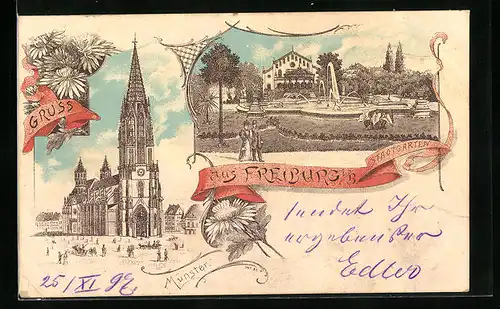 GRUSS
aus FREIBURG i/B.
STADTGARTEN
sendet Ihr
ergebenster
Münster
25/XI 97